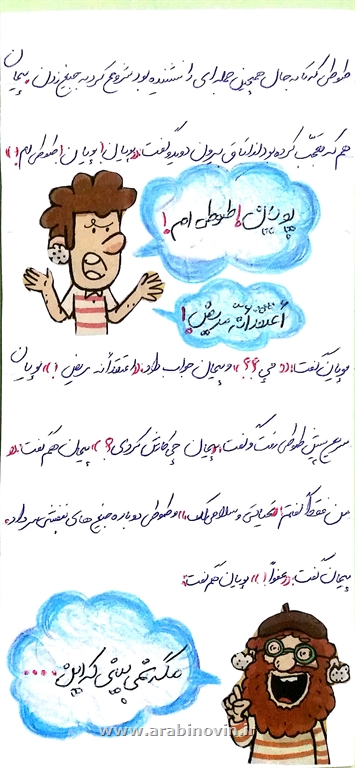 طوطی که تا به حال همچین جمله‌ای را نشنیده بود شروع کرد به جیغ زدن. پیمان
هم که تعجب کرده بود از اتاق بیرون دوید و گفت: «پویان! پویان! طوطی ام!»
پویان! طوطی ام!
أعتقد أنّه مریض!
پویان گفت: «چی؟؟» و پیمان جواب داد: «اعتقد أنه مریض!» پویان
پیش طوطی رفت و گفت: «پیمان چی کارش کردی؟» پیمان هم گفت: «
من فقط گفتم تحیاتی و سلامی لک» و طوطی دوباره جیغ های بنفشی سر داد.
پیمان گفت: «عفواً!» پویان هم گفت:
مگه نمی بینی
www.arabinovin.ir